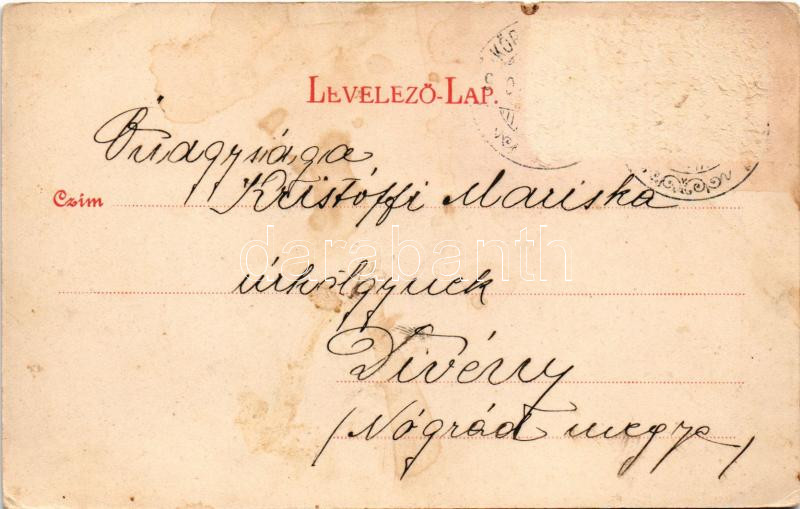 LEVELEZŐ-LAP.
Őnagysága
Czím Kristóffi Mariska
úrhölgynek
Divény
(Nógrád megye)
darabanth